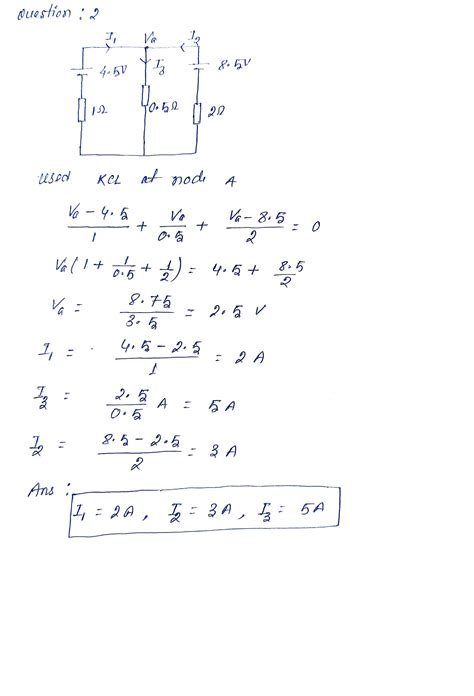 Question : 2
I₁ Va I₂
4.5V I₃ 8.5V
1Ω 0.5Ω 2Ω
used KCL at node A
(Va - 4.5)/1 + Va/0.5 + (Va - 8.5)/2 = 0
Va (1 + 1/0.5 + 1/2) = 4.5 + 8.5/2
Va = 8.75/3.5 = 2.5 V
I₁ = (4.5 - 2.5)/1 = 2 A
I₃ = 2.5/0.5 A = 5A
I₂ = (8.5 - 2.5)/2 = 3 A
Ans :
I₁ = 2A , I₂ = 3A , I₃ = 5A